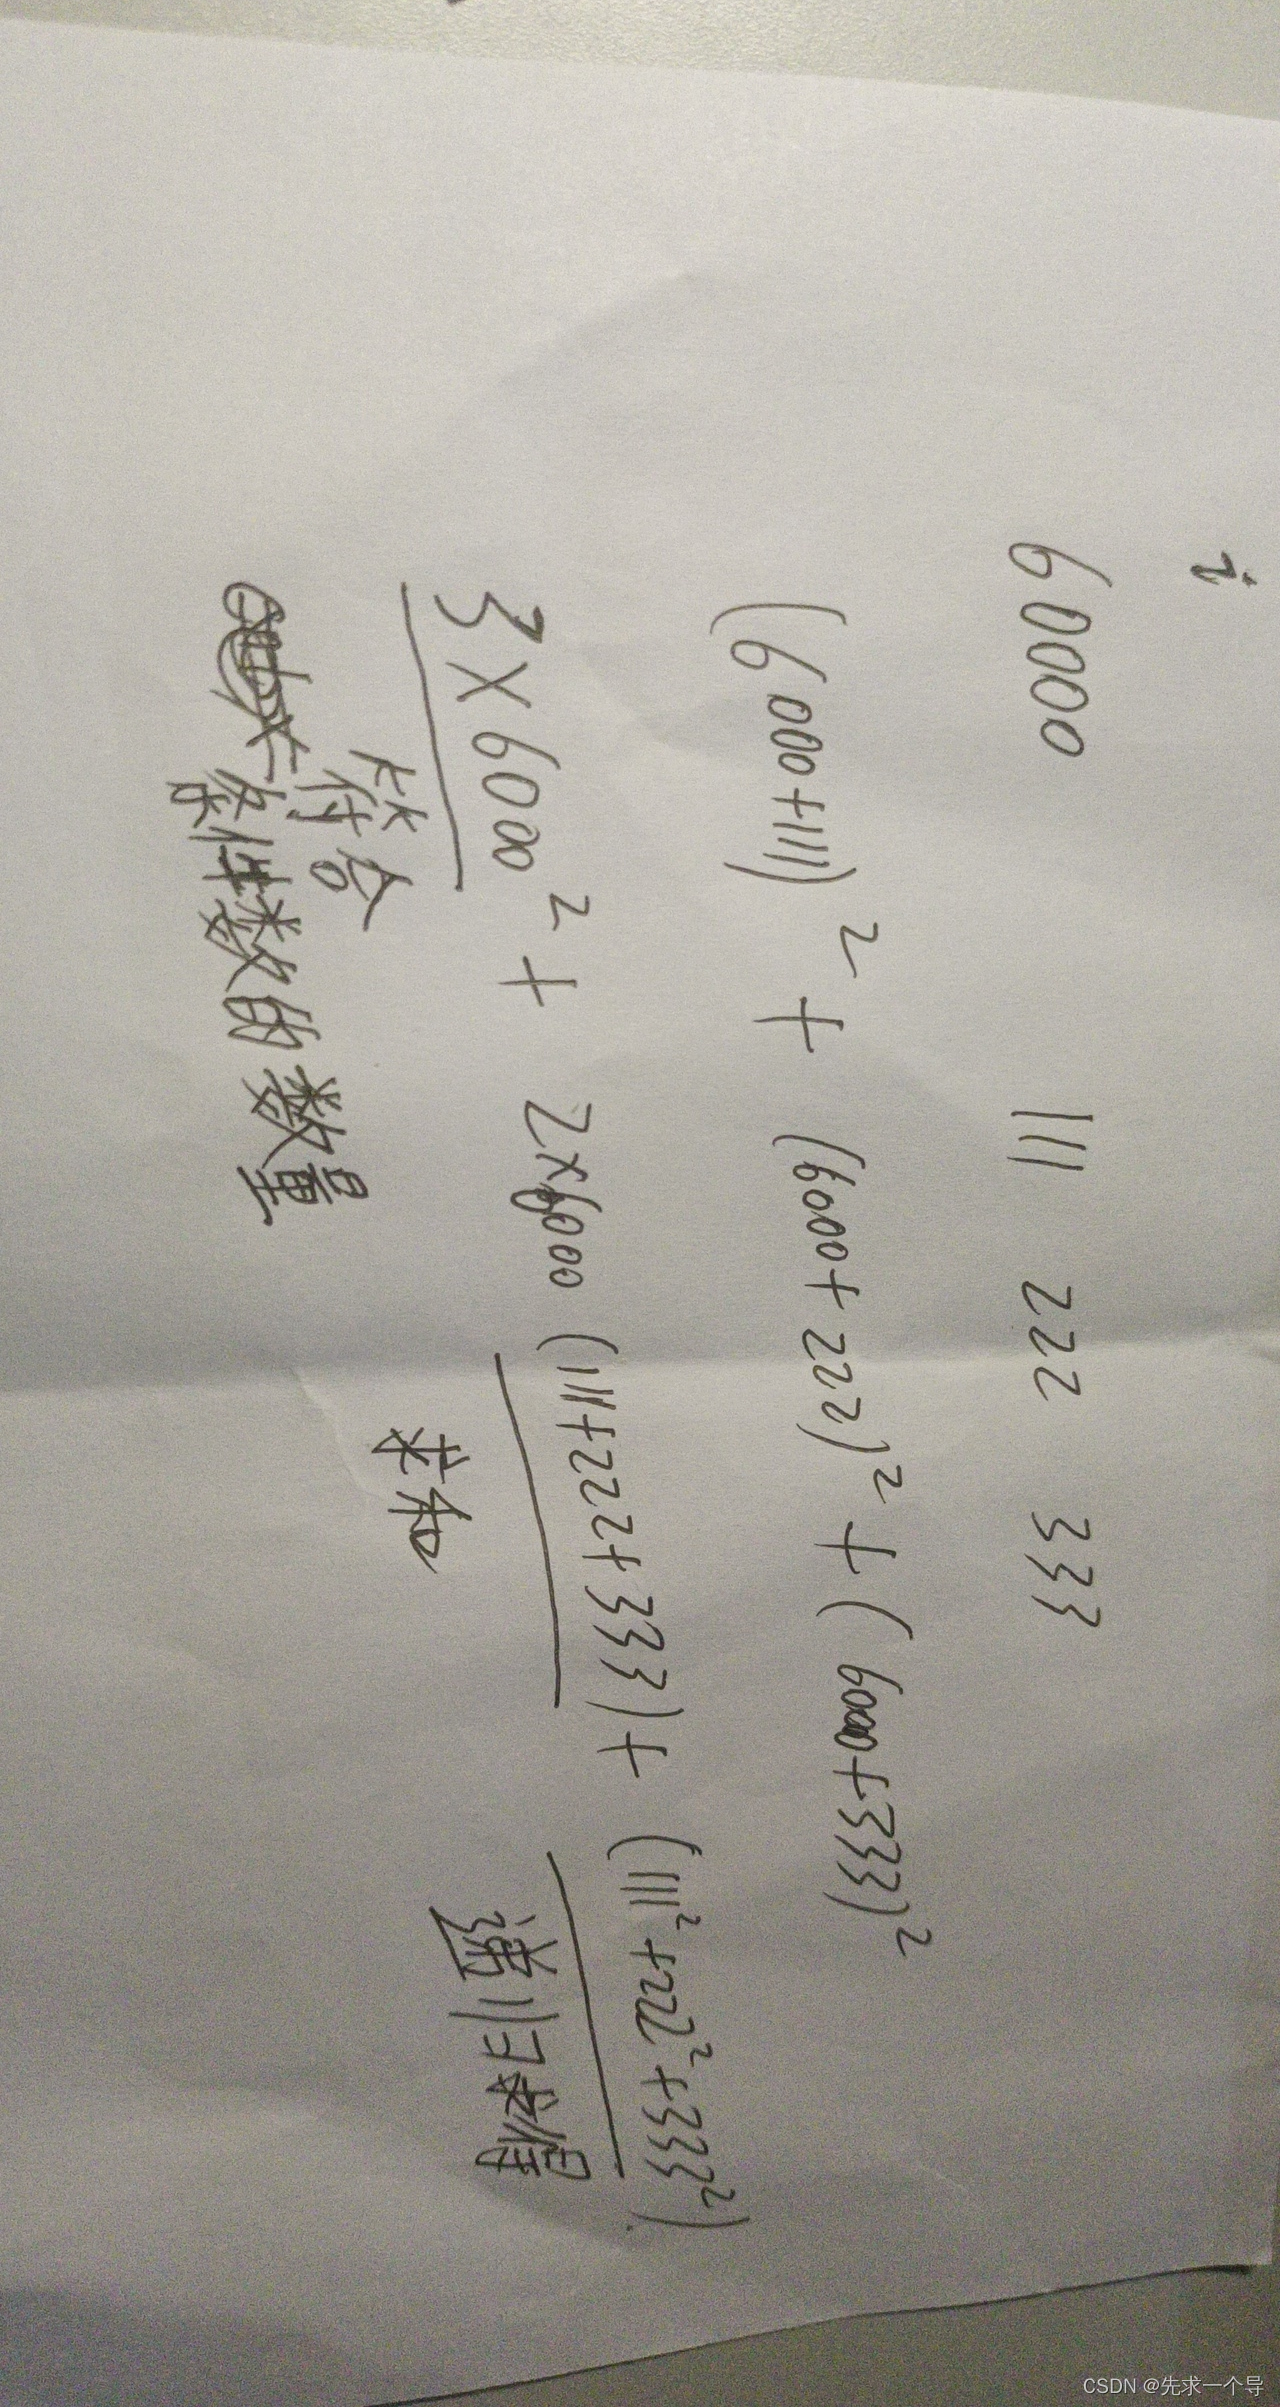 i
60000 111 222 333
(6000+111)² + (6000+222)² + (6000+333)²
3×6000² + 2×6000 (111+222+333) + (111²+222²+333²)
符合 求和 递归求
条件数的数量
CSDN @先求一个导